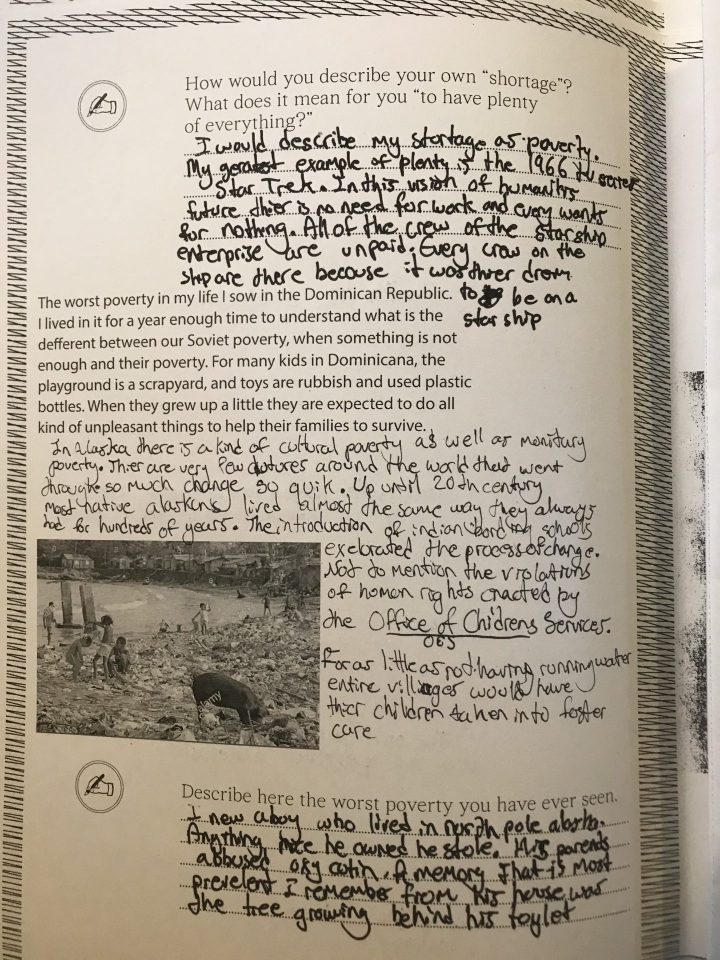 How would you describe your own “shortage”?
What does it mean for you “to have plenty
of everything?”
I would describe my stortage as poverty.
My gereatest example of plenty is the 1966 tv series
Star Trek. In this vision of humanitys
future thier is no need for work and every wants
for nothing. All of the crew of the starship
enterprise are unpaid. Every craw on the
ship are there because it was thier drem
to be on a
star ship
The worst poverty in my life I sow in the Dominican Republic.
I lived in it for a year enough time to understand what is the
defferent between our Soviet poverty, when something is not
enough and their poverty. For many kids in Dominicana, the
playground is a scrapyard, and toys are rubbish and used plastic
bottles. When they grew up a little they are expected to do all
kind of unpleasant things to help their families to survive.
In Alaska there is a kind of cultural poverty as well as monitary
poverty. Thier are very few cultures around the world that went
through so much change so quik. Up until 20th century
most native alaskans lived almost the same way they always
had for hundreds of years. The introduction of indian bording schools
exelorated the process of change.
Not to mention the violations
of homan rights enacted by
the Office of Childrens Services.
OCS
For as little as not having running water
entire villages would have
thier children taken into foster
care
alamy
Describe here the worst poverty you have ever seen.
I new a boy who lived in north pole alaska.
Anything nice he owned he stole. His parents
abbused oxy cotin. A memory that is most
prevelent I remember from his house was
the tree growing behind his toylet